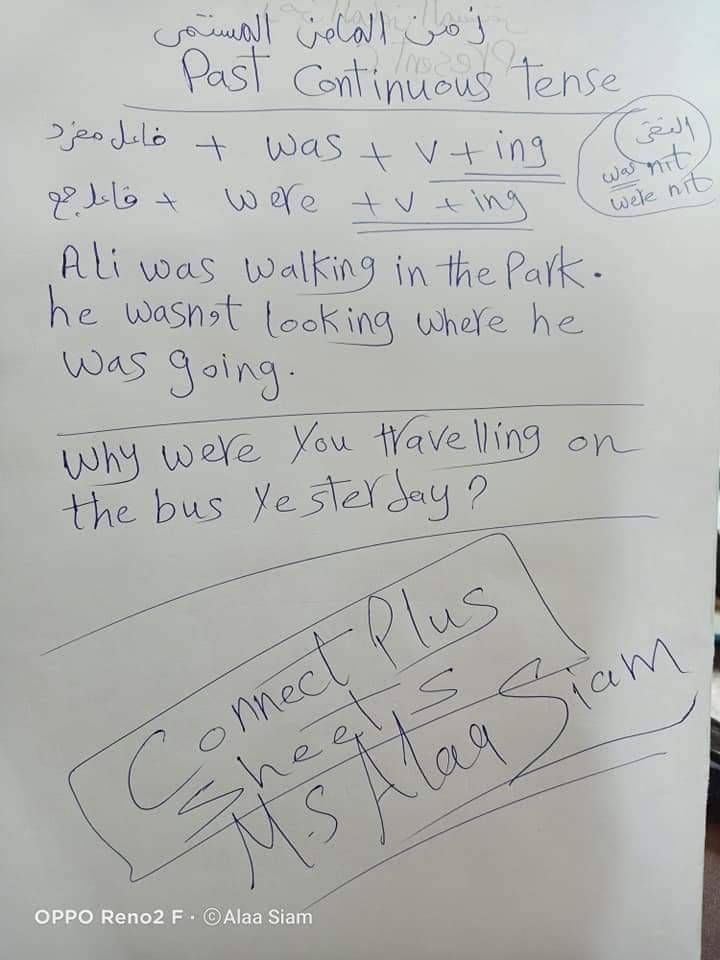 زمن الماضى المستمر
Past Continuous Tense
فاعل مفرد + was + v + ing
فاعل جمع + were + v + ing
النفى
was not
were not
Ali was walking in the Park.
he wasnot looking where he
was going.
Why were You travelling on
the bus Yesterday?
Connect Plus
Sheets
M.S Alaa Siam
OPPO Reno2 F · ©Alaa Siam